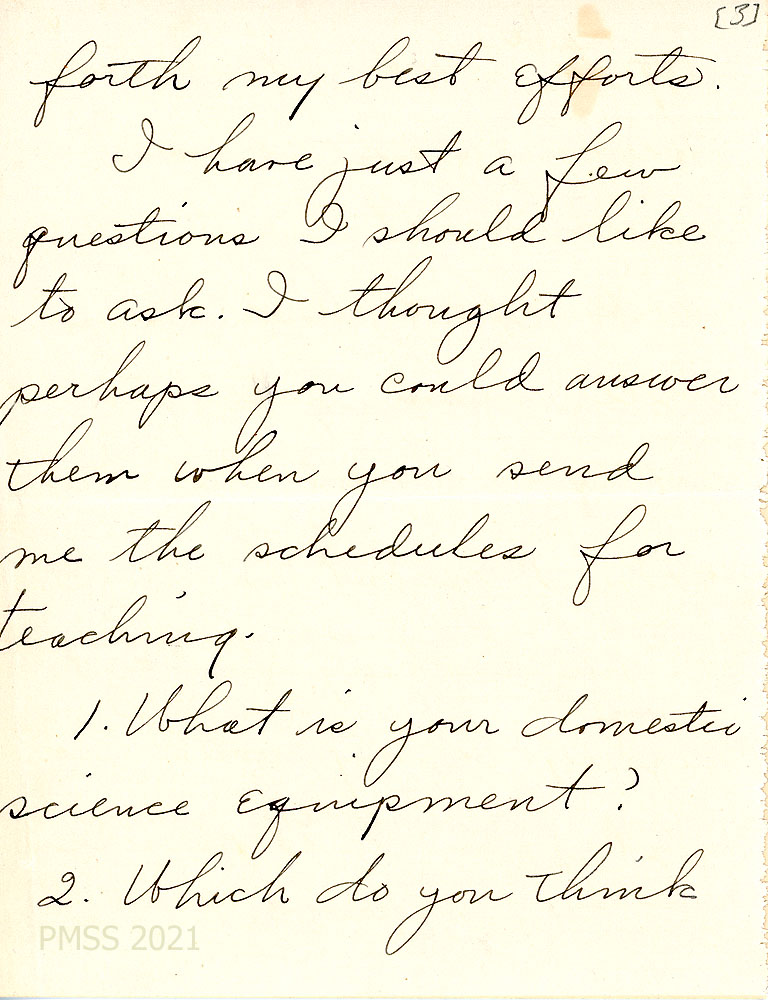 [3]
forth my best efforts.
I have just a few
questions I should like
to ask. I thought
perhaps you could answer
them when you send
me the schedules for
teaching.
1. What is your domestic
science equipment?
2. Which do you think
PMSS 2021